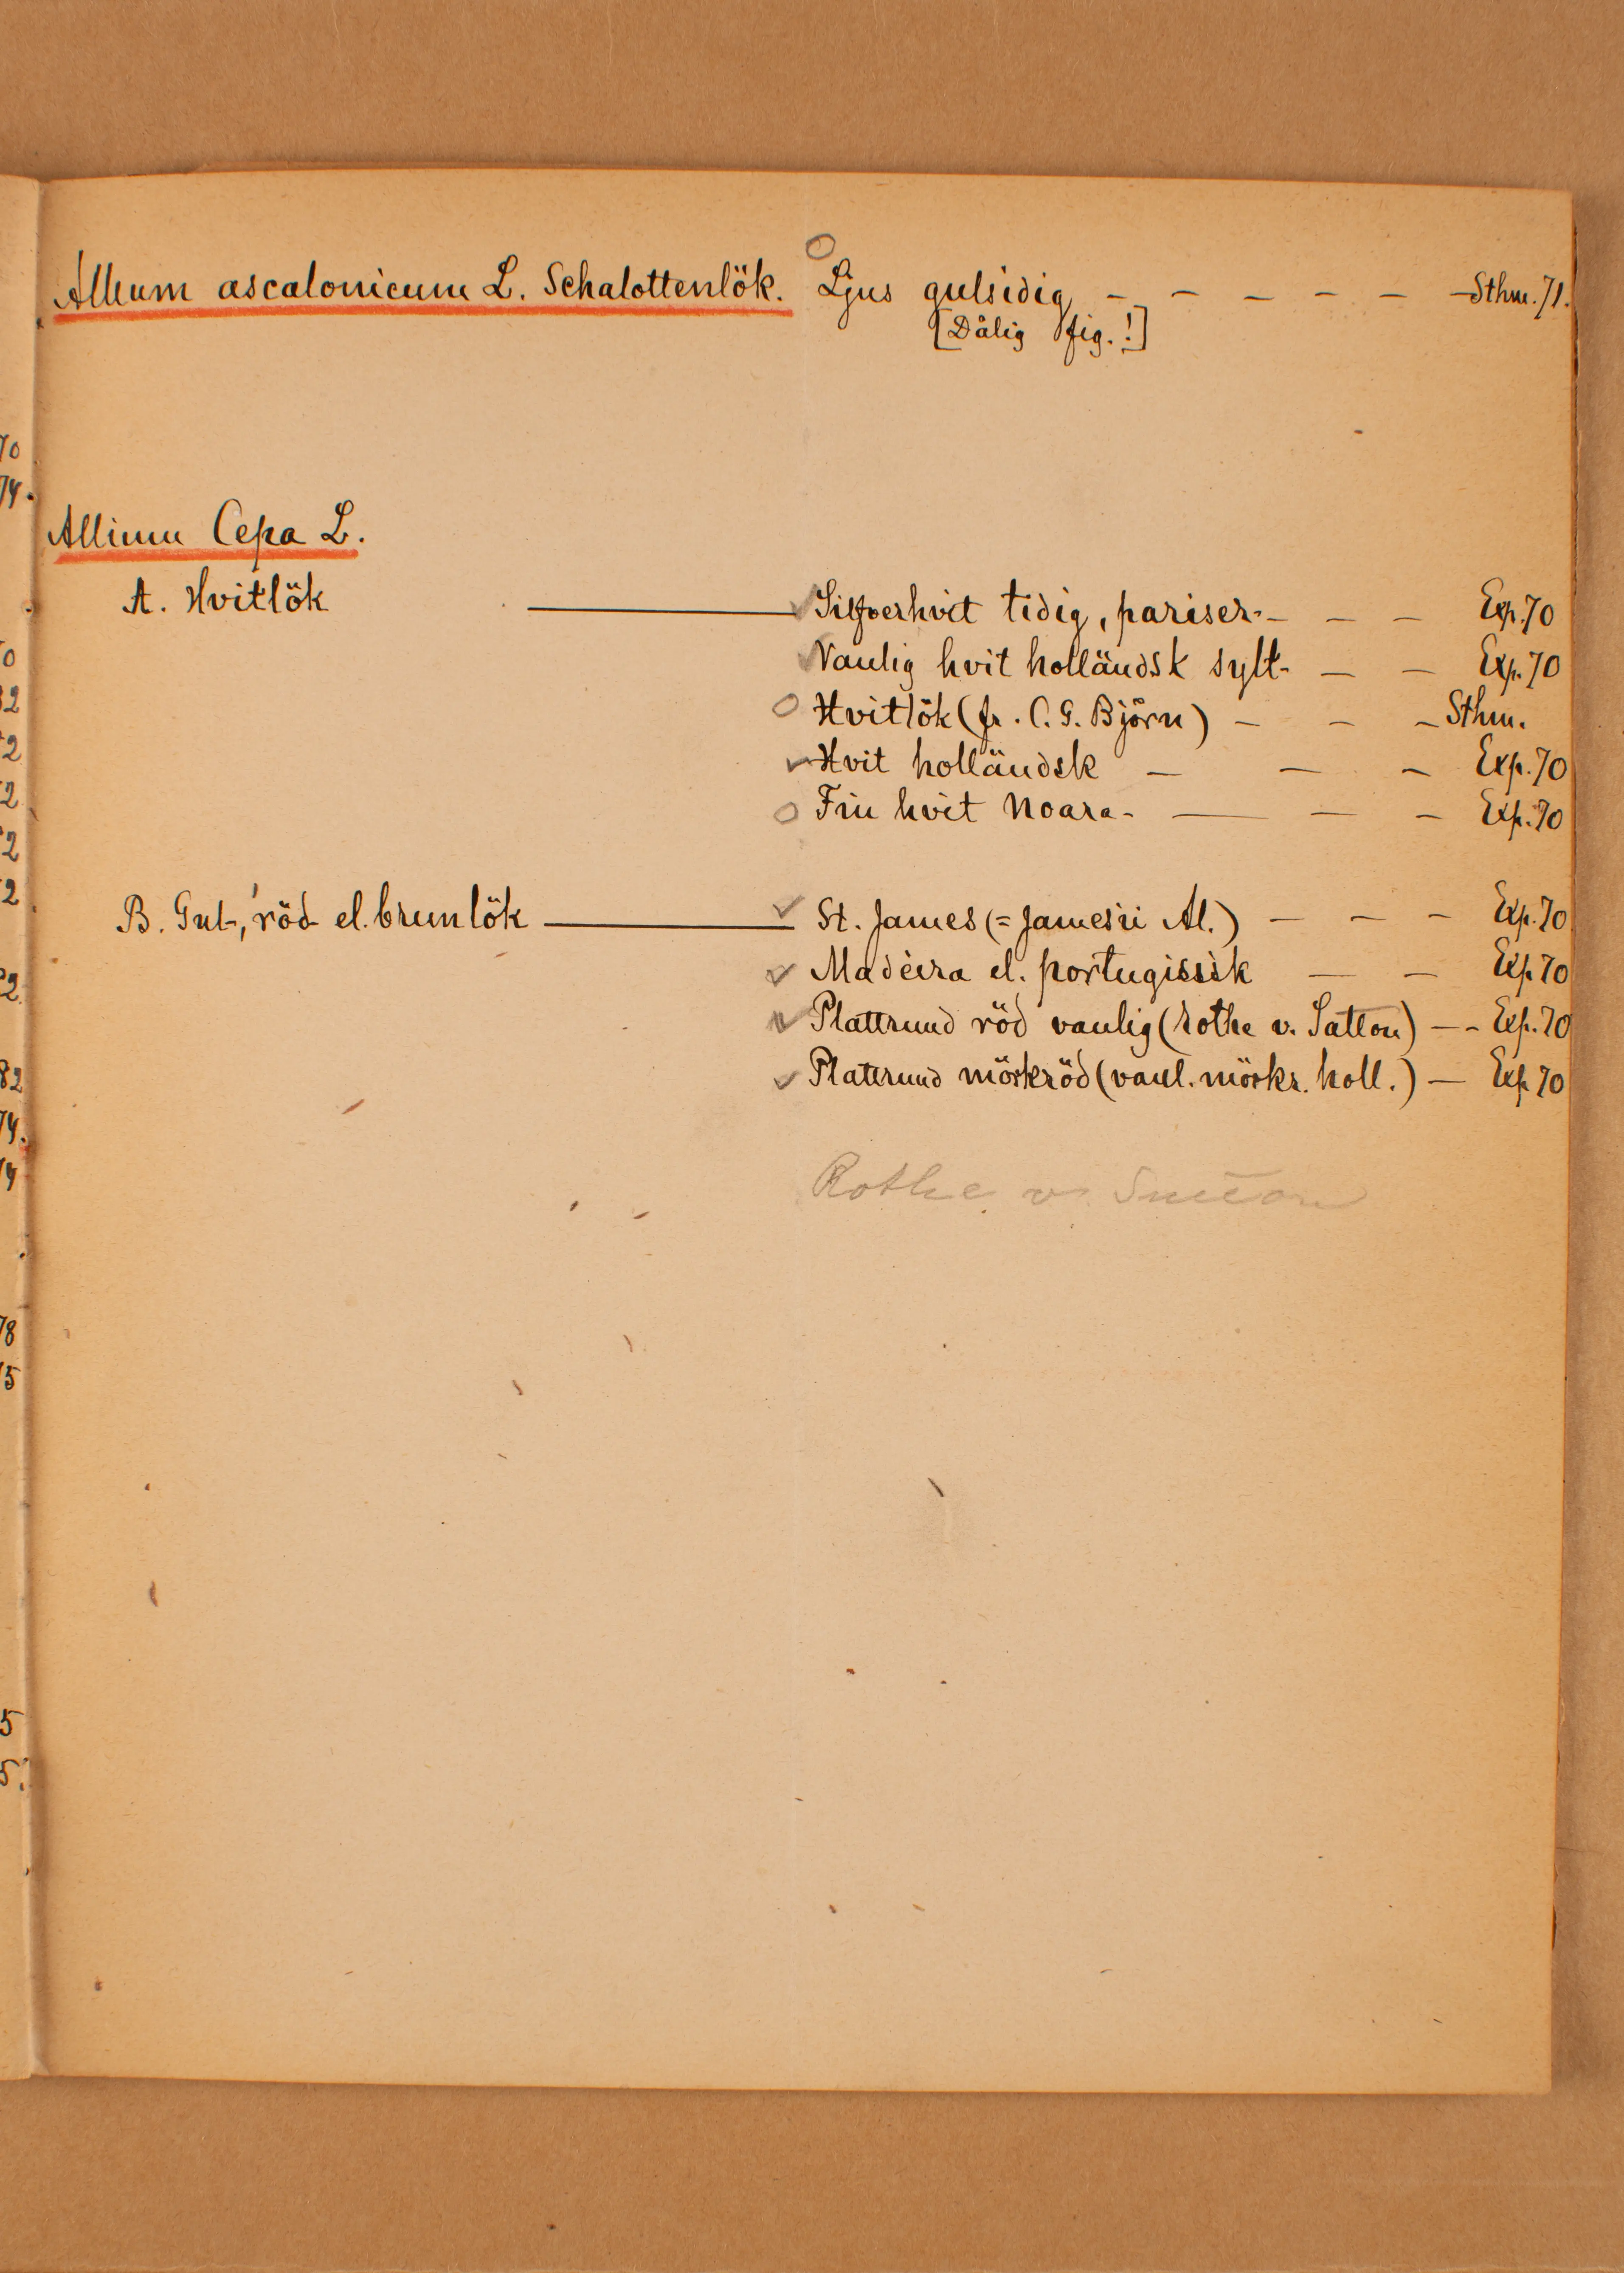 Allium ascalonicum L. Schalottenlök. Ljus gulsidig – – – – – – Sthm. 71.
[Dålig fig.!]
Allium Cepa L.
A. Hvitlök ——— Silfverhvit tidig, pariser- – – – Exp. 70
Vanlig hvit holländsk sylt- – – Exp. 70
Hvitlök (fr. C. G. Björn) – – – Sthm.
Hvit holländsk – – – Exp. 70
Fin hvit Noara- – – – Exp. 70
B. Gul-, röd- el. brunlök ——— St. James (= James'ii Al.) – – – Exp. 70
Madeira el. portugisisk – – Exp. 70
Plattrund röd vanlig (rothe v. ) – – Exp. 70
Plattrund mörkröd (vanl. mörkr. holl.) – Exp. 70
Rothe v.
70
74.
0
32
2
2
2
2
2
82
74.
4
78
75
5
5.